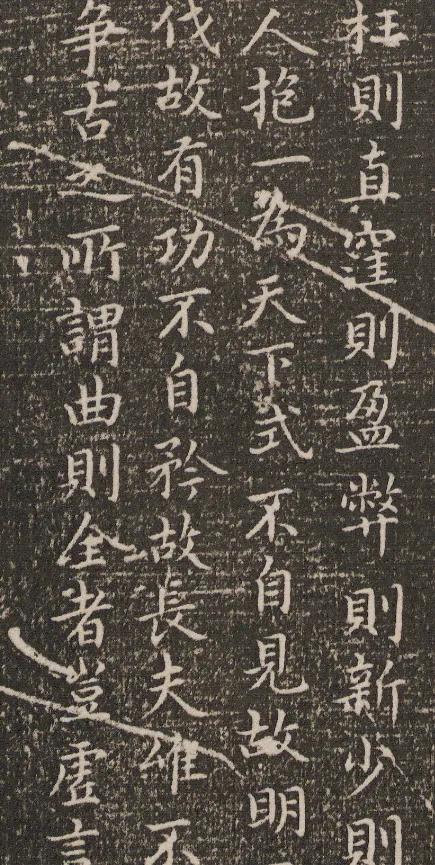 枉則直窪則盈弊則新少則
人抱一為天下式不自見故明
伐故有功不自矜故長夫唯不
爭古之所謂曲則全者豈虛言